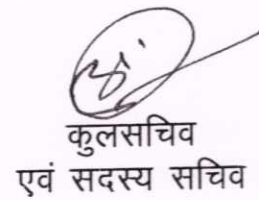 कुलसचिव
एवं सदस्य सचिव